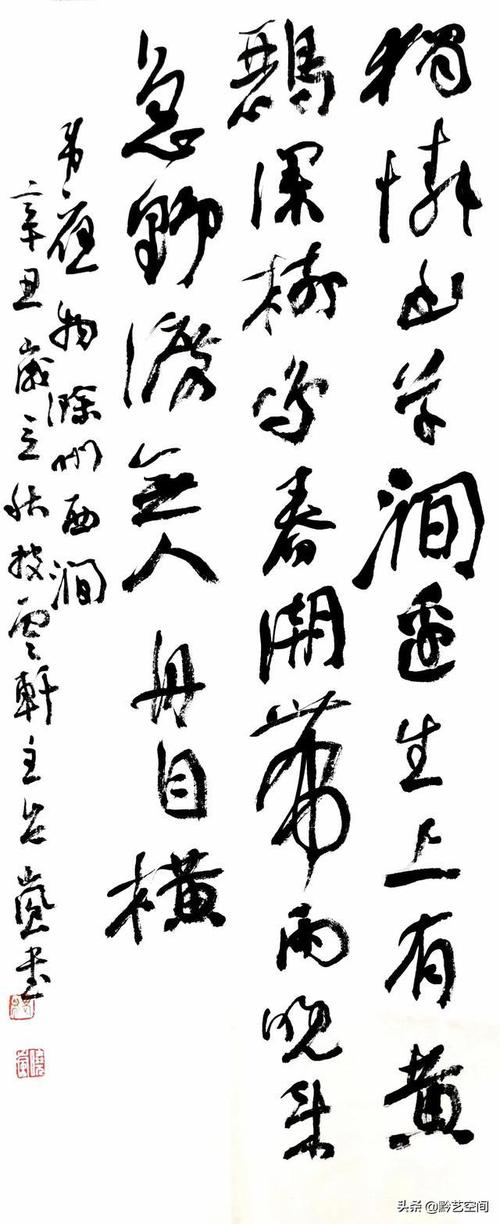 獨憐幽草澗邊生上有黃
鸝深樹鳴春潮帶雨晚來
急野渡無人舟自橫
韋應物滁州西澗
辛丑歲立秋披雲軒主嵐書
头条@黔艺空间